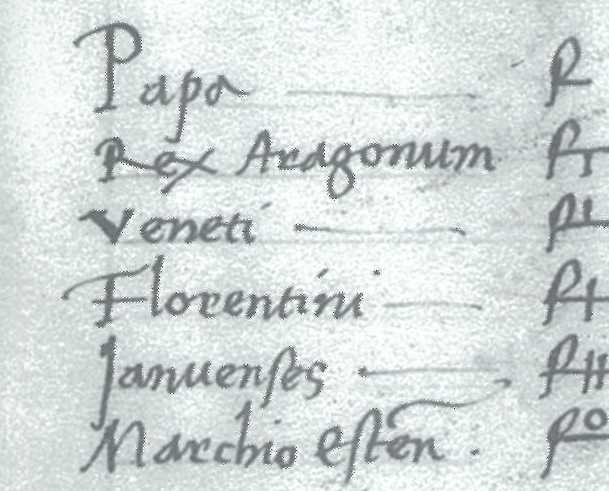 Papa
Rex Aragonum
Veneti
Florentini
Januenses
Marchio Esten.